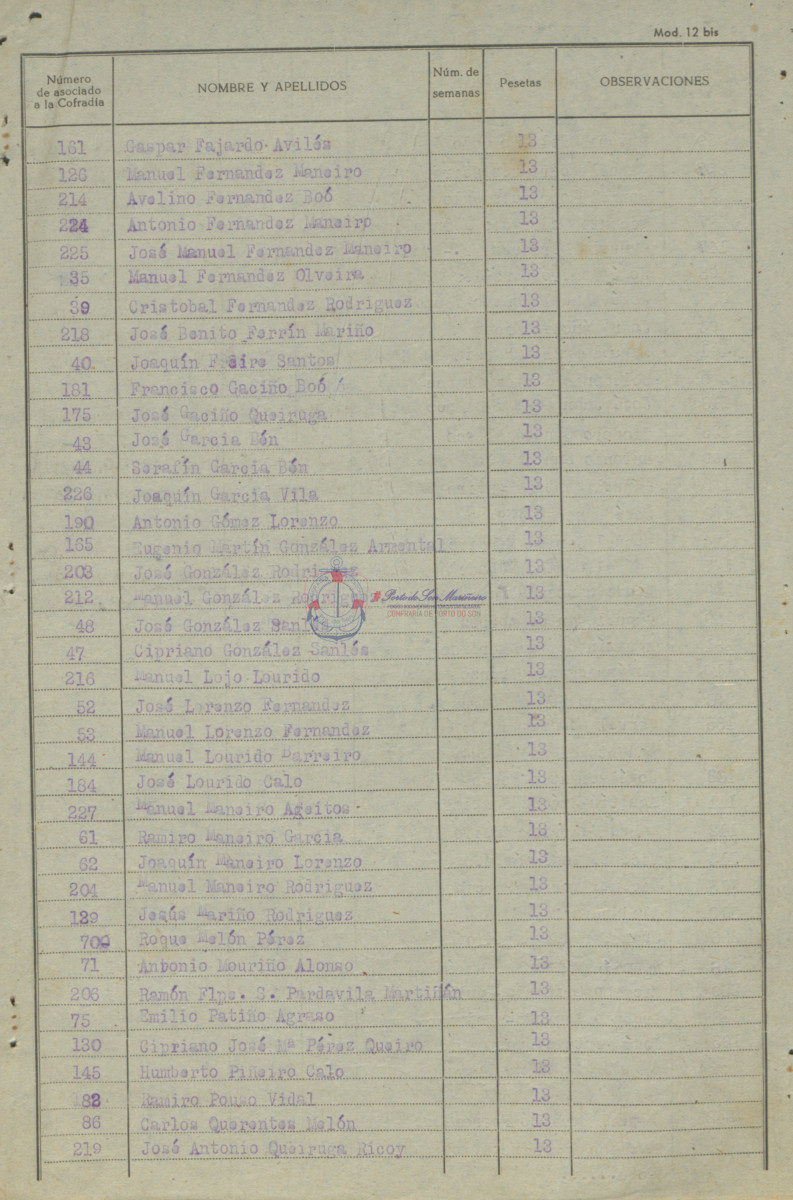 Mod. 12 bis
Número de asociado a la Cofradía NOMBRE Y APELLIDOS Núm. de semanas Pesetas OBSERVACIONES
161 Gaspar Fajardo Avilés 13
126 Manuel Fernandez Maneiro 13
214 Avelino Fernandez Boó 13
224 Antonio Fernandez Maneiro 13
225 José Manuel Fernandez Maneiro 13
35 Manuel Fernandez Olveira 13
39 Cristobal Fernandez Rodriguez 13
218 José Benito Ferrín Mariño 13
40 Joaquín Freire Santos 13
181 Francisco Gaciño Boó 13
175 José Gaciño Queiruga 13
43 José Garcia Bén 13
44 Serafín Garcia Bén 13
226 Joaquín Garcia Vila 13
190 Antonio Gómez Lorenzo 13
165 Eugenio Martín González Armental 13
203 José González Rodriguez 13
212 Manuel González 13
Porto do Son Mariñeiro
CONFRARÍA DE PORTO DO SON
48 José González Sanlés 13
47 Cipriano González Sanlés 13
216 Manuel Lojo Lourido 13
52 José Lorenzo Fernandez 13
53 Manuel Lorenzo Fernandez 13
144 Manuel Lourido Barreiro 13
184 José Lourido Calo 13
227 Manuel Maneiro Ageitos 13
61 Ramiro Maneiro Garcia 13
62 Joaquín Maneiro Lorenzo 13
204 Manuel Maneiro Rodriguez 13
129 Jesús Mariño Rodriguez 13
Roque Melón Pérez 13
71 Antonio Mouriño Alonso 13
206 Ramón Flpe. S. Pardavila Martiñán 13
75 Emilio Patiño Agraso 13
130 Cipriano José Mª Pérez Queiro 13
145 Humberto Piñeiro Calo 13
82 Ramiro Pouso Vidal 13
86 Carlos Querentes Melón 13
219 José Antonio Queiruga Ricoy 13